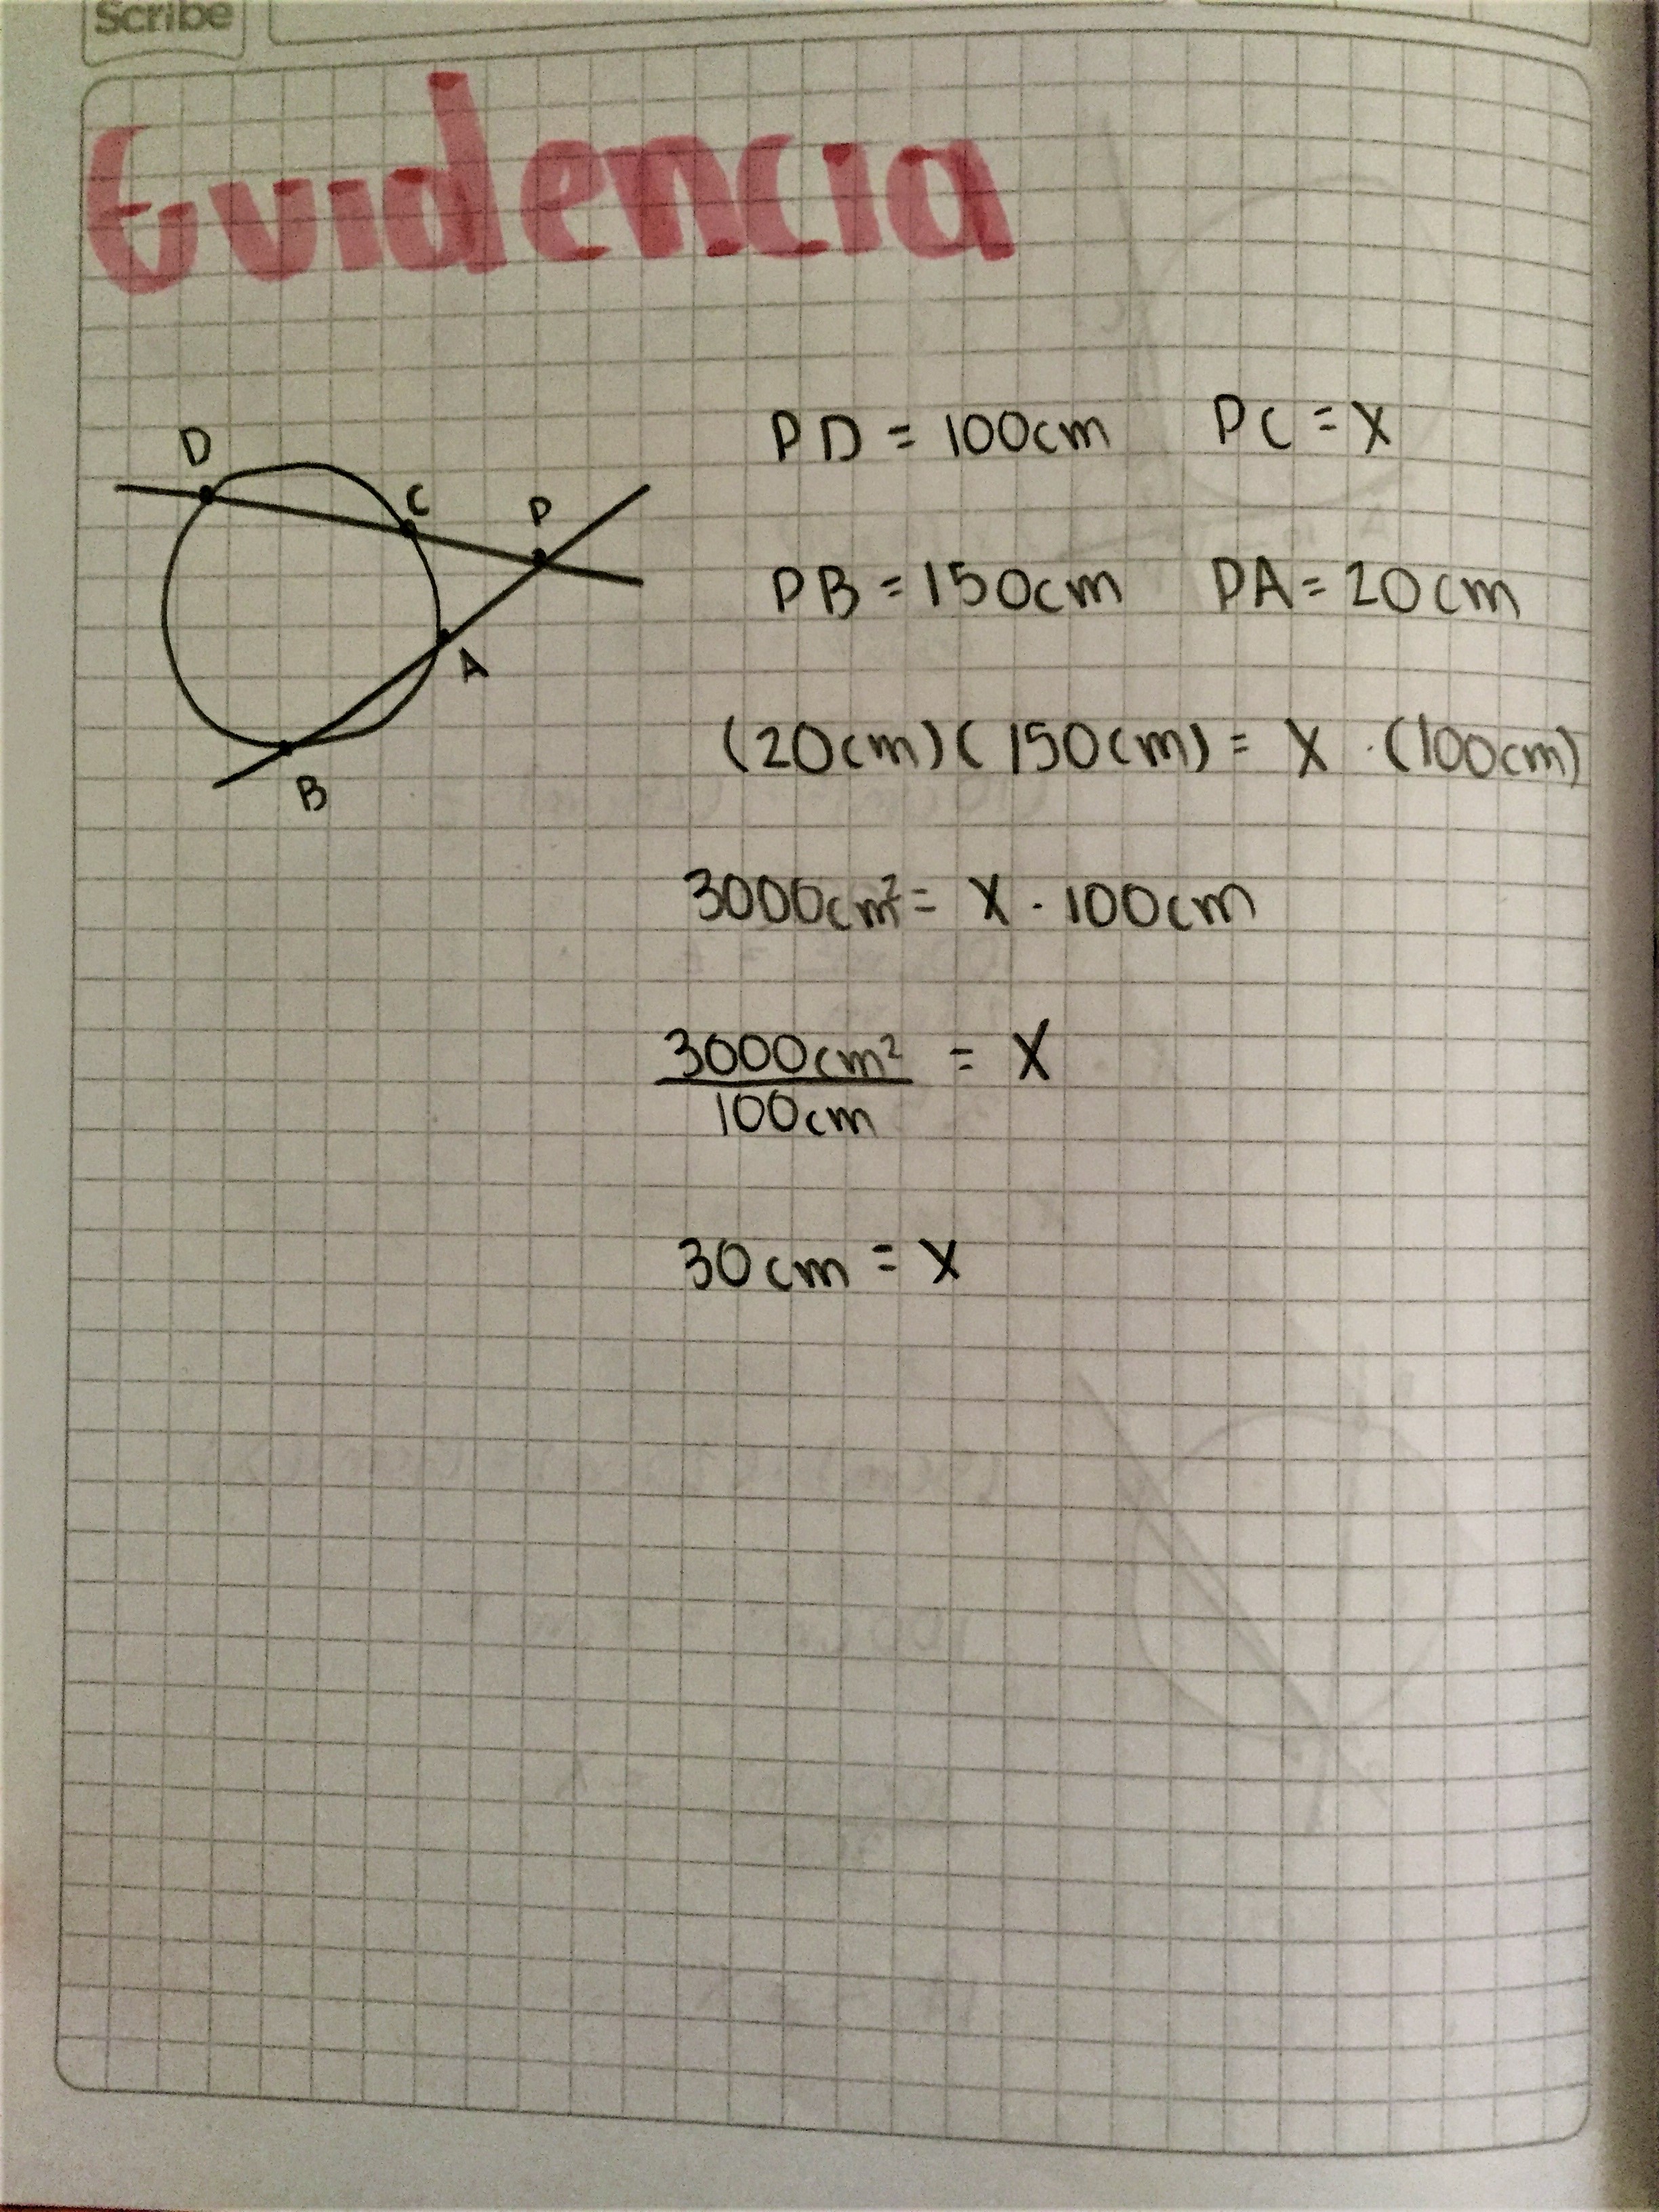 Scribe
Evidencia
PD = 100cm PC = X
D
C
P
PB = 150cm PA = 20cm
A
B
(20cm)(150cm) = X · (100cm)
3000cm² = X · 100cm
3000cm² = X
100cm
30cm = X